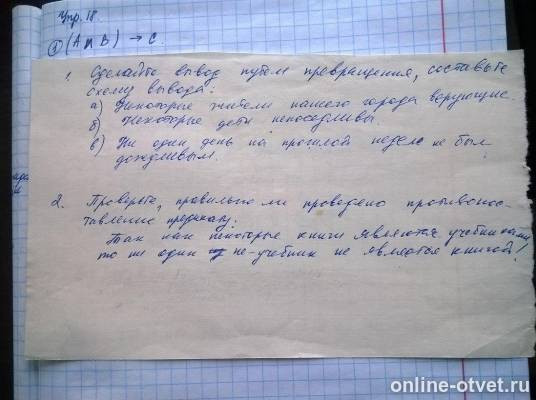 Упр. 18.
① (А и В) → С.
1. Сделайте вывод путем превращения, составьте
схему вывода:
а) Некоторые жители нашего города верующие.
б) Некоторые дети непоседливы.
в) Ни один день на прошлой неделе не был
дождливым.
2. Проверьте, правильно ли проведено противопос-
тавление предикату:
Так как некоторые книги являются учебниками,
то ни один не-учебник не является книгой!
online-otvet.ru